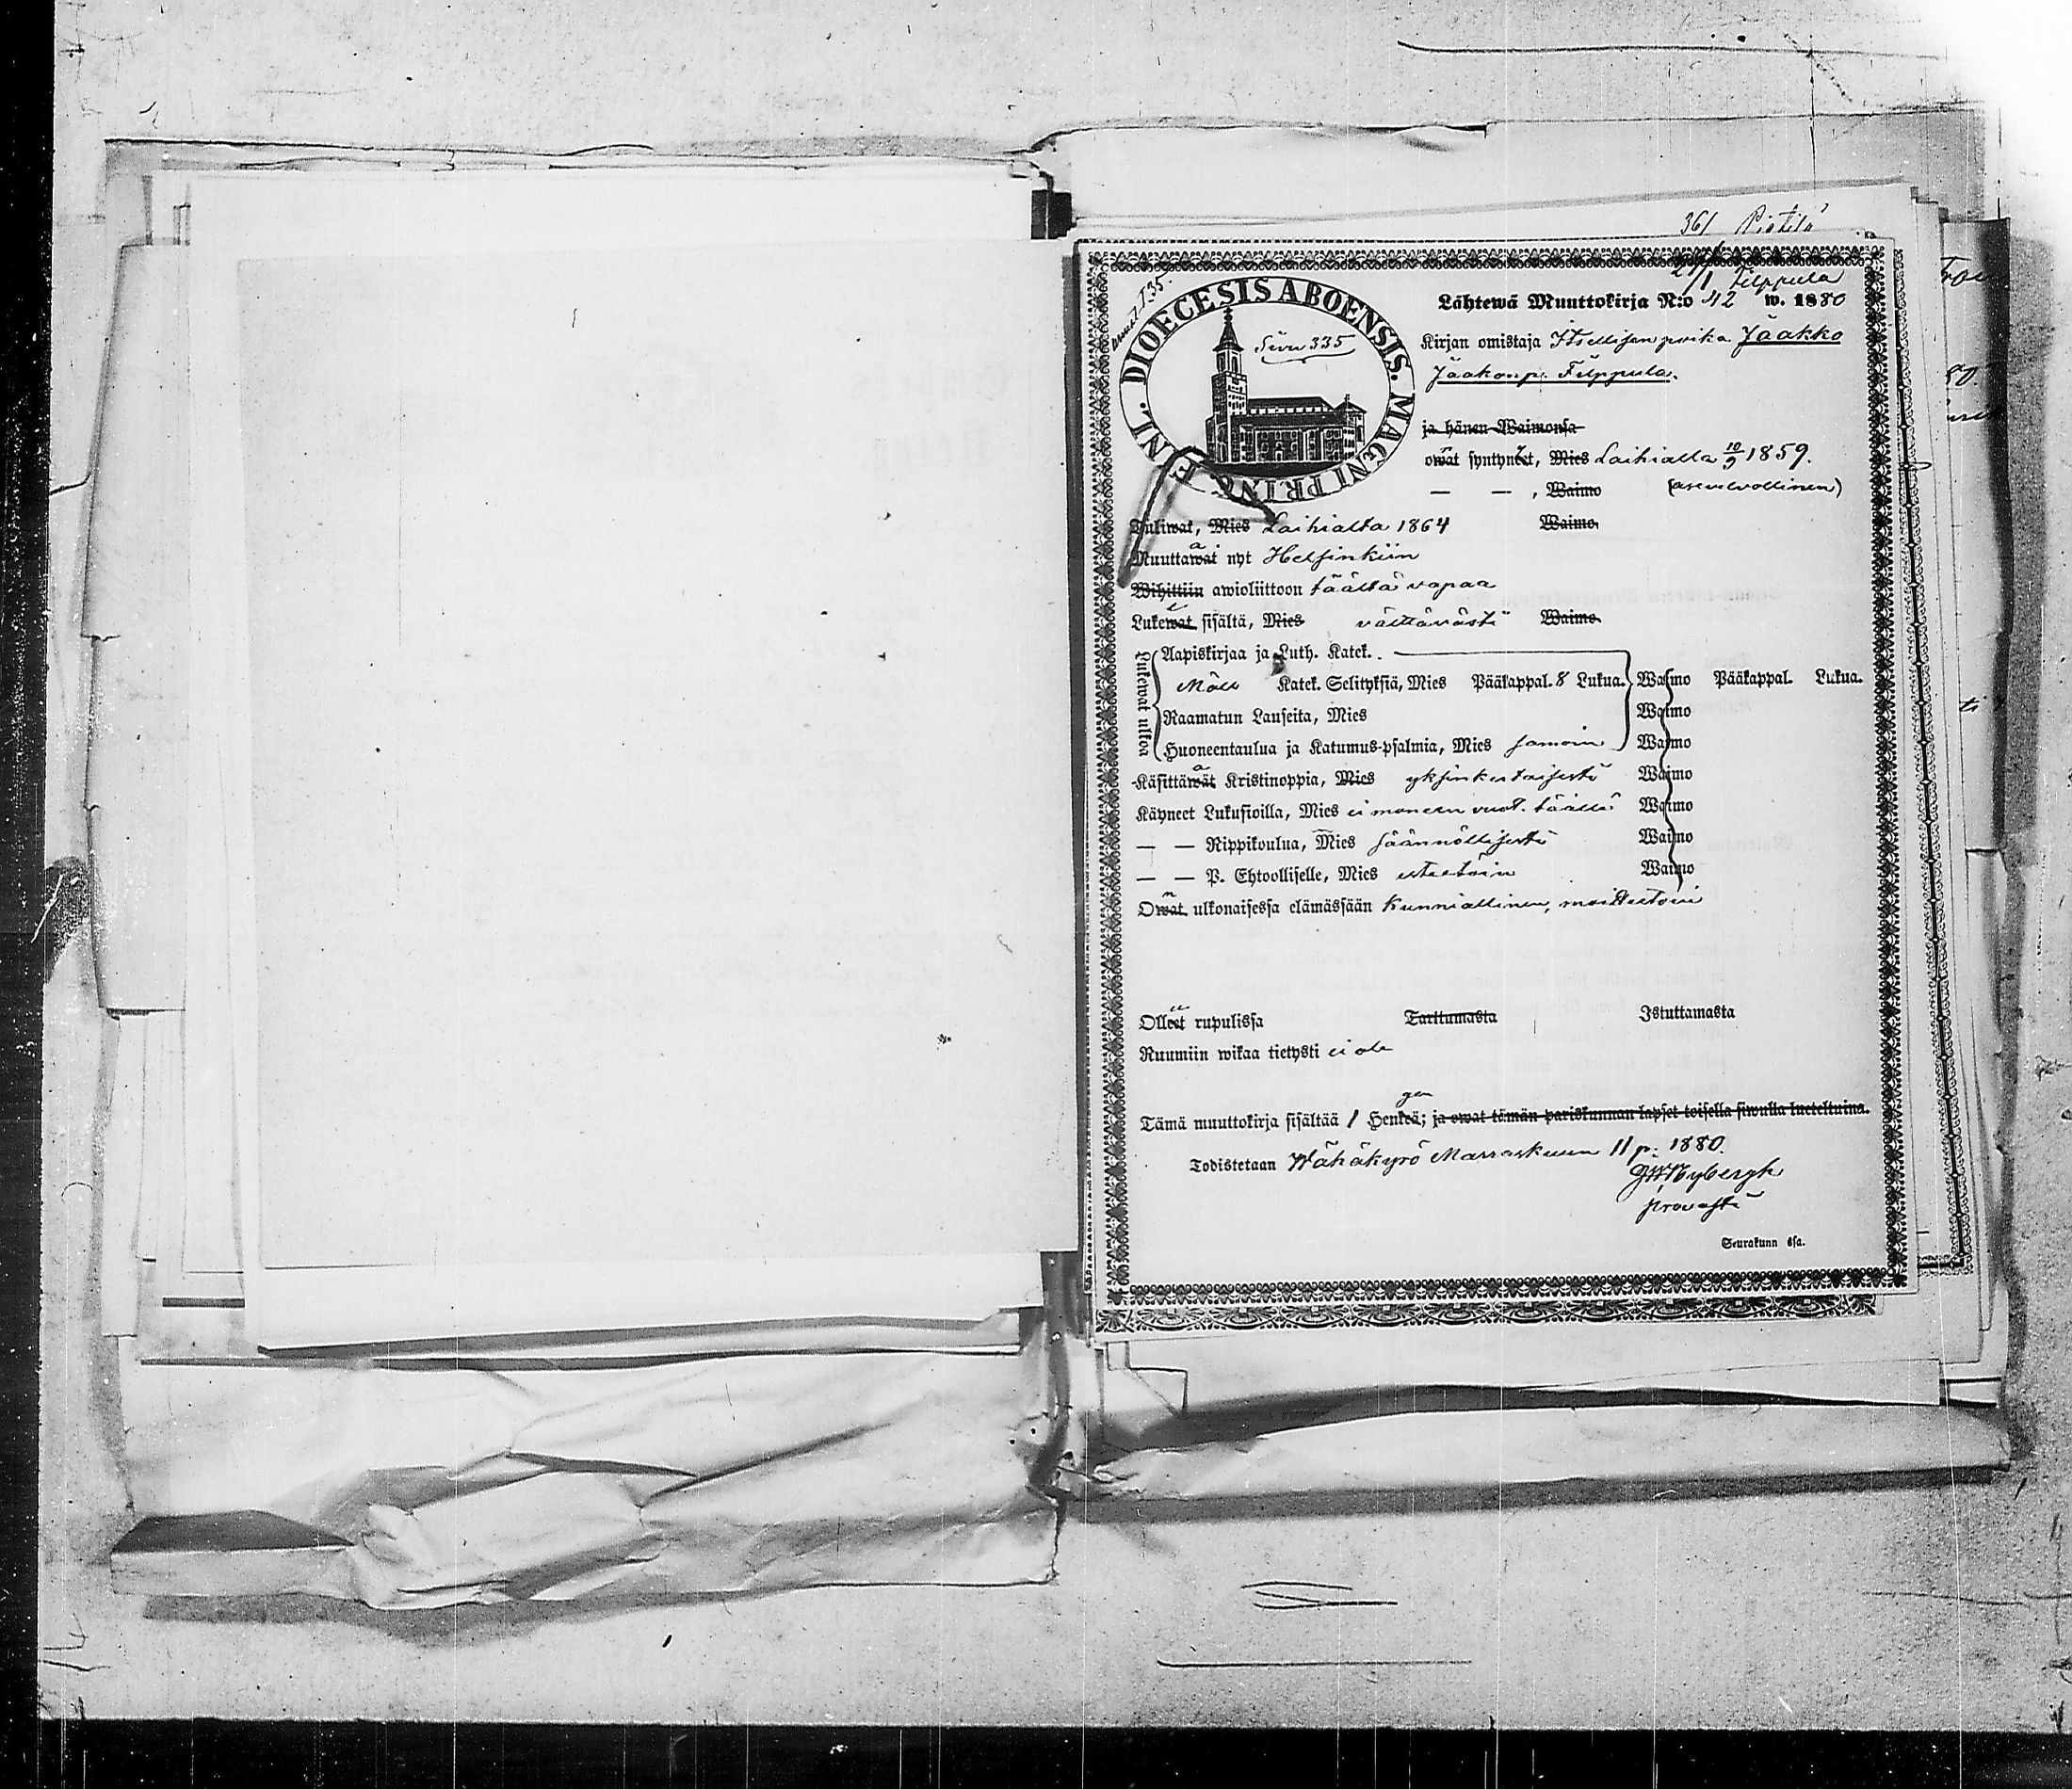 361
21/1 Filppula
DIOECESIS ABOENSIS. MAGNI PRINC. FINL.
Sivu 335
Lähtewä Muuttokirja N:o 42 w. 1880
Kirjan omistaja Itsellisen poika Jaakko
Jaakonp. Filppula.
ja hänen Waimonsa
owat syntyneet, Mies Laihialla 10/9 1859.
— — , Waimo (asevelvollinen)
Tuliwat, Mies Laihialta 1864 Waimo
Muuttawat nyt Helsinkiin
Wihittiin awioliittoon täältä vapaa
Lukewat sisältä, Mies välttävästi Waimo
Lukewat ulkoa
Aapiskirjaa ja Luth. Katek.
Möll Katek. Selityksiä, Mies Pääkappal. 8 Lukua. Waimo Pääkappal. Lukua.
Raamatun Lauseita, Mies Waimo
Huoneentaulua ja Katumus-psalmia, Mies samoin Waimo
Käsittäwät Kristinoppia, Mies yksinkertaisesti Waimo
Käyneet Lukusioilla, Mies ei moneen vuot. täällä Waimo
— — Rippikoulua, Mies säännöllisesti Waimo
— — P. Ehtoolliselle, Mies esteetöin Waimo
Owat ulkonaisessa elämässään kunniallinen, moitteetoin
Olleet rupulissa Tarttumasta Istuttamasta
Ruumiin wikaa tietysti ei ole
Tämä muuttokirja sisältää 1 Henkeä; ja owat tämän pariskunnan lapset toisella siwulla lueteltuina.
Todistetaan Wähäkyrö Marraskuun 11 p. 1880.
GWNybergh
provasti
Seurakunn ssa.